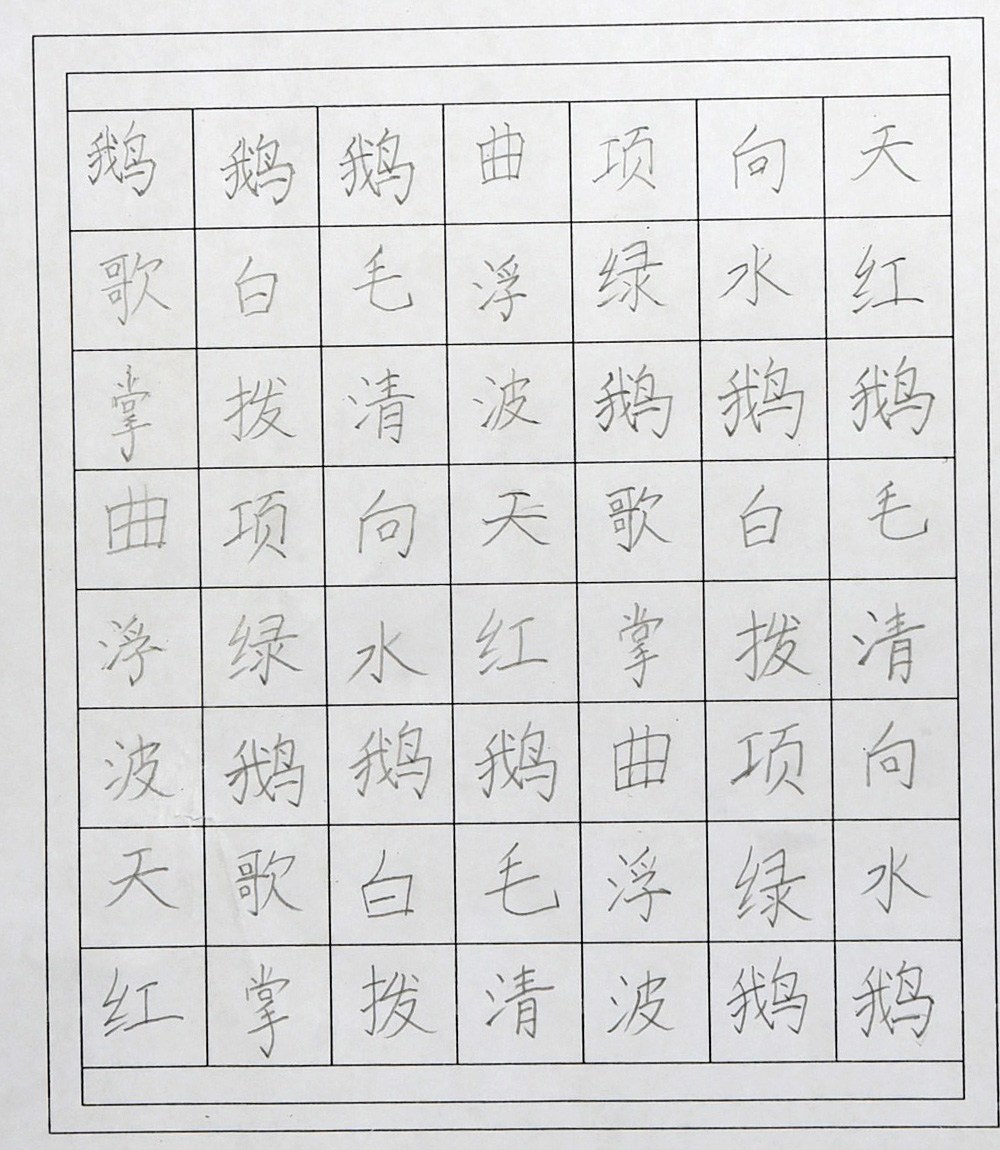 鹅鹅鹅曲项向天
歌白毛浮绿水红
掌拨清波鹅鹅鹅
曲项向天歌白毛
浮绿水红掌拨清
波鹅鹅鹅曲项向
天歌白毛浮绿水
红掌拨清波鹅鹅